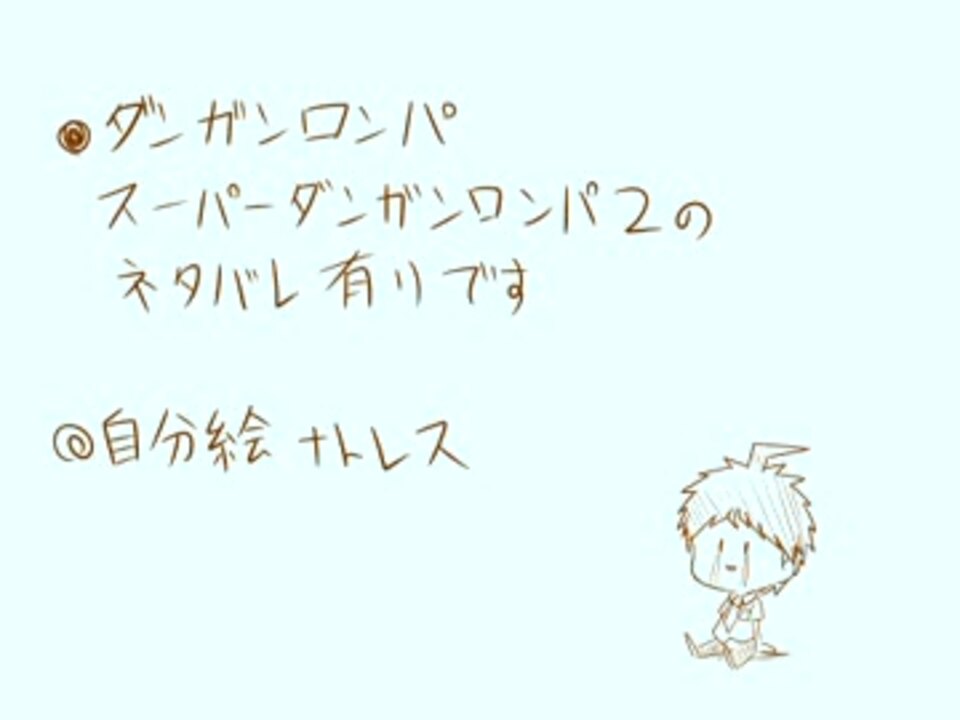 ◉ダンガンロンパ
スーパーダンガンロンパ2の
ネタバレ有りです
◎自分絵+トレス